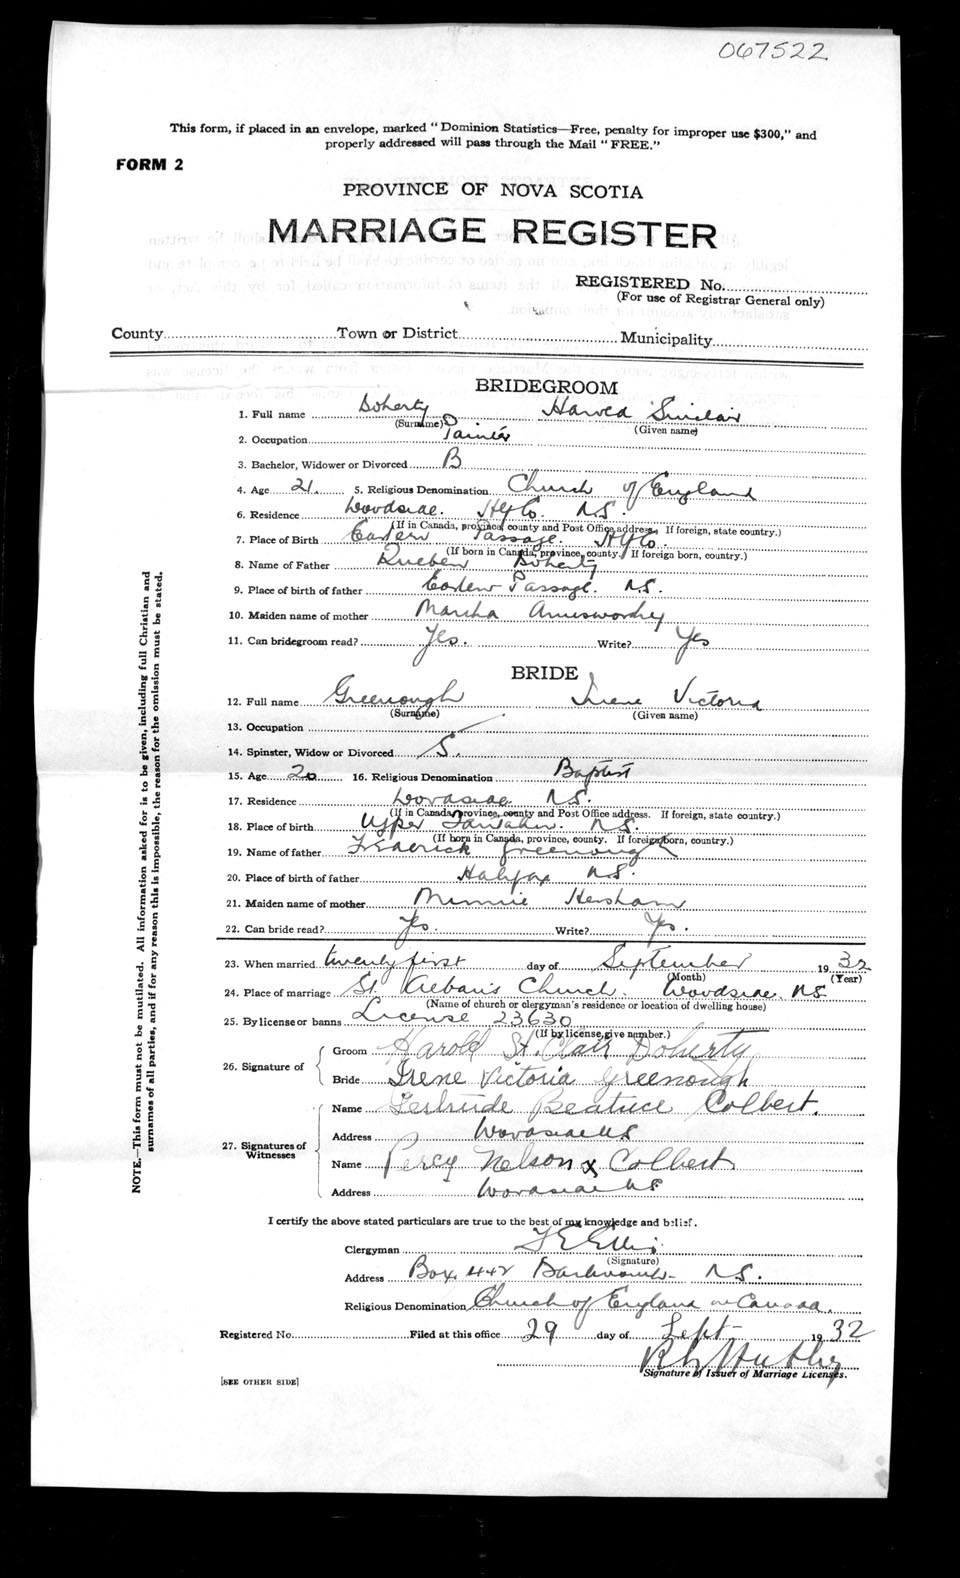 067522
This form, if placed in an envelope, marked "Dominion Statistics—Free, penalty for improper use $300," and
properly addressed will pass through the Mail "FREE."
FORM 2
PROVINCE OF NOVA SCOTIA
MARRIAGE REGISTER
REGISTERED No.
(For use of Registrar General only)
County Town or District Municipality
BRIDEGROOM
1. Full name Doherty Harold Sinclair
(Surname) (Given name)
2. Occupation Painter
3. Bachelor, Widower or Divorced B
4. Age 21. 5. Religious Denomination Church of England
6. Residence Woodside. Hfx Co. N.S.
(If in Canada, province, county and Post Office address. If foreign, state country.)
7. Place of Birth Eastern Passage. Hfx Co.
(If born in Canada, province, county. If foreign born, country.)
8. Name of Father Rueben Doherty
9. Place of birth of father Eastern Passage. N.S.
10. Maiden name of mother Martha
11. Can bridegroom read? Yes. Write? Yes
BRIDE
12. Full name Greenough Irene Victoria
(Surname) (Given name)
13. Occupation
14. Spinster, Widow or Divorced S.
15. Age 20 16. Religious Denomination Baptist
17. Residence Woodside N.S.
(If in Canada, province, county and Post Office address. If foreign, state country.)
18. Place of birth Upper N.S.
(If born in Canada, province, county. If foreign born, country.)
19. Name of father Frederick Greenough
20. Place of birth of father Halifax N.S.
21. Maiden name of mother Minnie Hersham
22. Can bride read? Yes. Write? Yes.
23. When married twenty first day of September 1932
(Month) (Year)
24. Place of marriage St. Alban's Church. Woodside, N.S.
(Name of church or clergyman's residence or location of dwelling house)
25. By license or banns License 23630
(If by license, give number.)
26. Signature of
Groom Harold St. Clair Doherty
Bride Irene Victoria Greenough
27. Signatures of Witnesses
Name Gertrude Beatrice Colbert.
Address Woodside N.S
Name Percy Nelson x Colbert
Address Woodside N.S.
I certify the above stated particulars are true to the best of my knowledge and belief.
Clergyman Ellis
(Signature)
Address Box 442 Dartmouth N.S.
Religious Denomination Church of England in Canada.
Registered No. Filed at this office 29 day of Sept 1932
Signature of Issuer of Marriage Licenses.
[SEE OTHER SIDE]
NOTE.—This form must not be mutilated. All information asked for is to be given, including full Christian and
surnames of all parties, and if for any reason this is impossible, the reason for the omission must be stated.